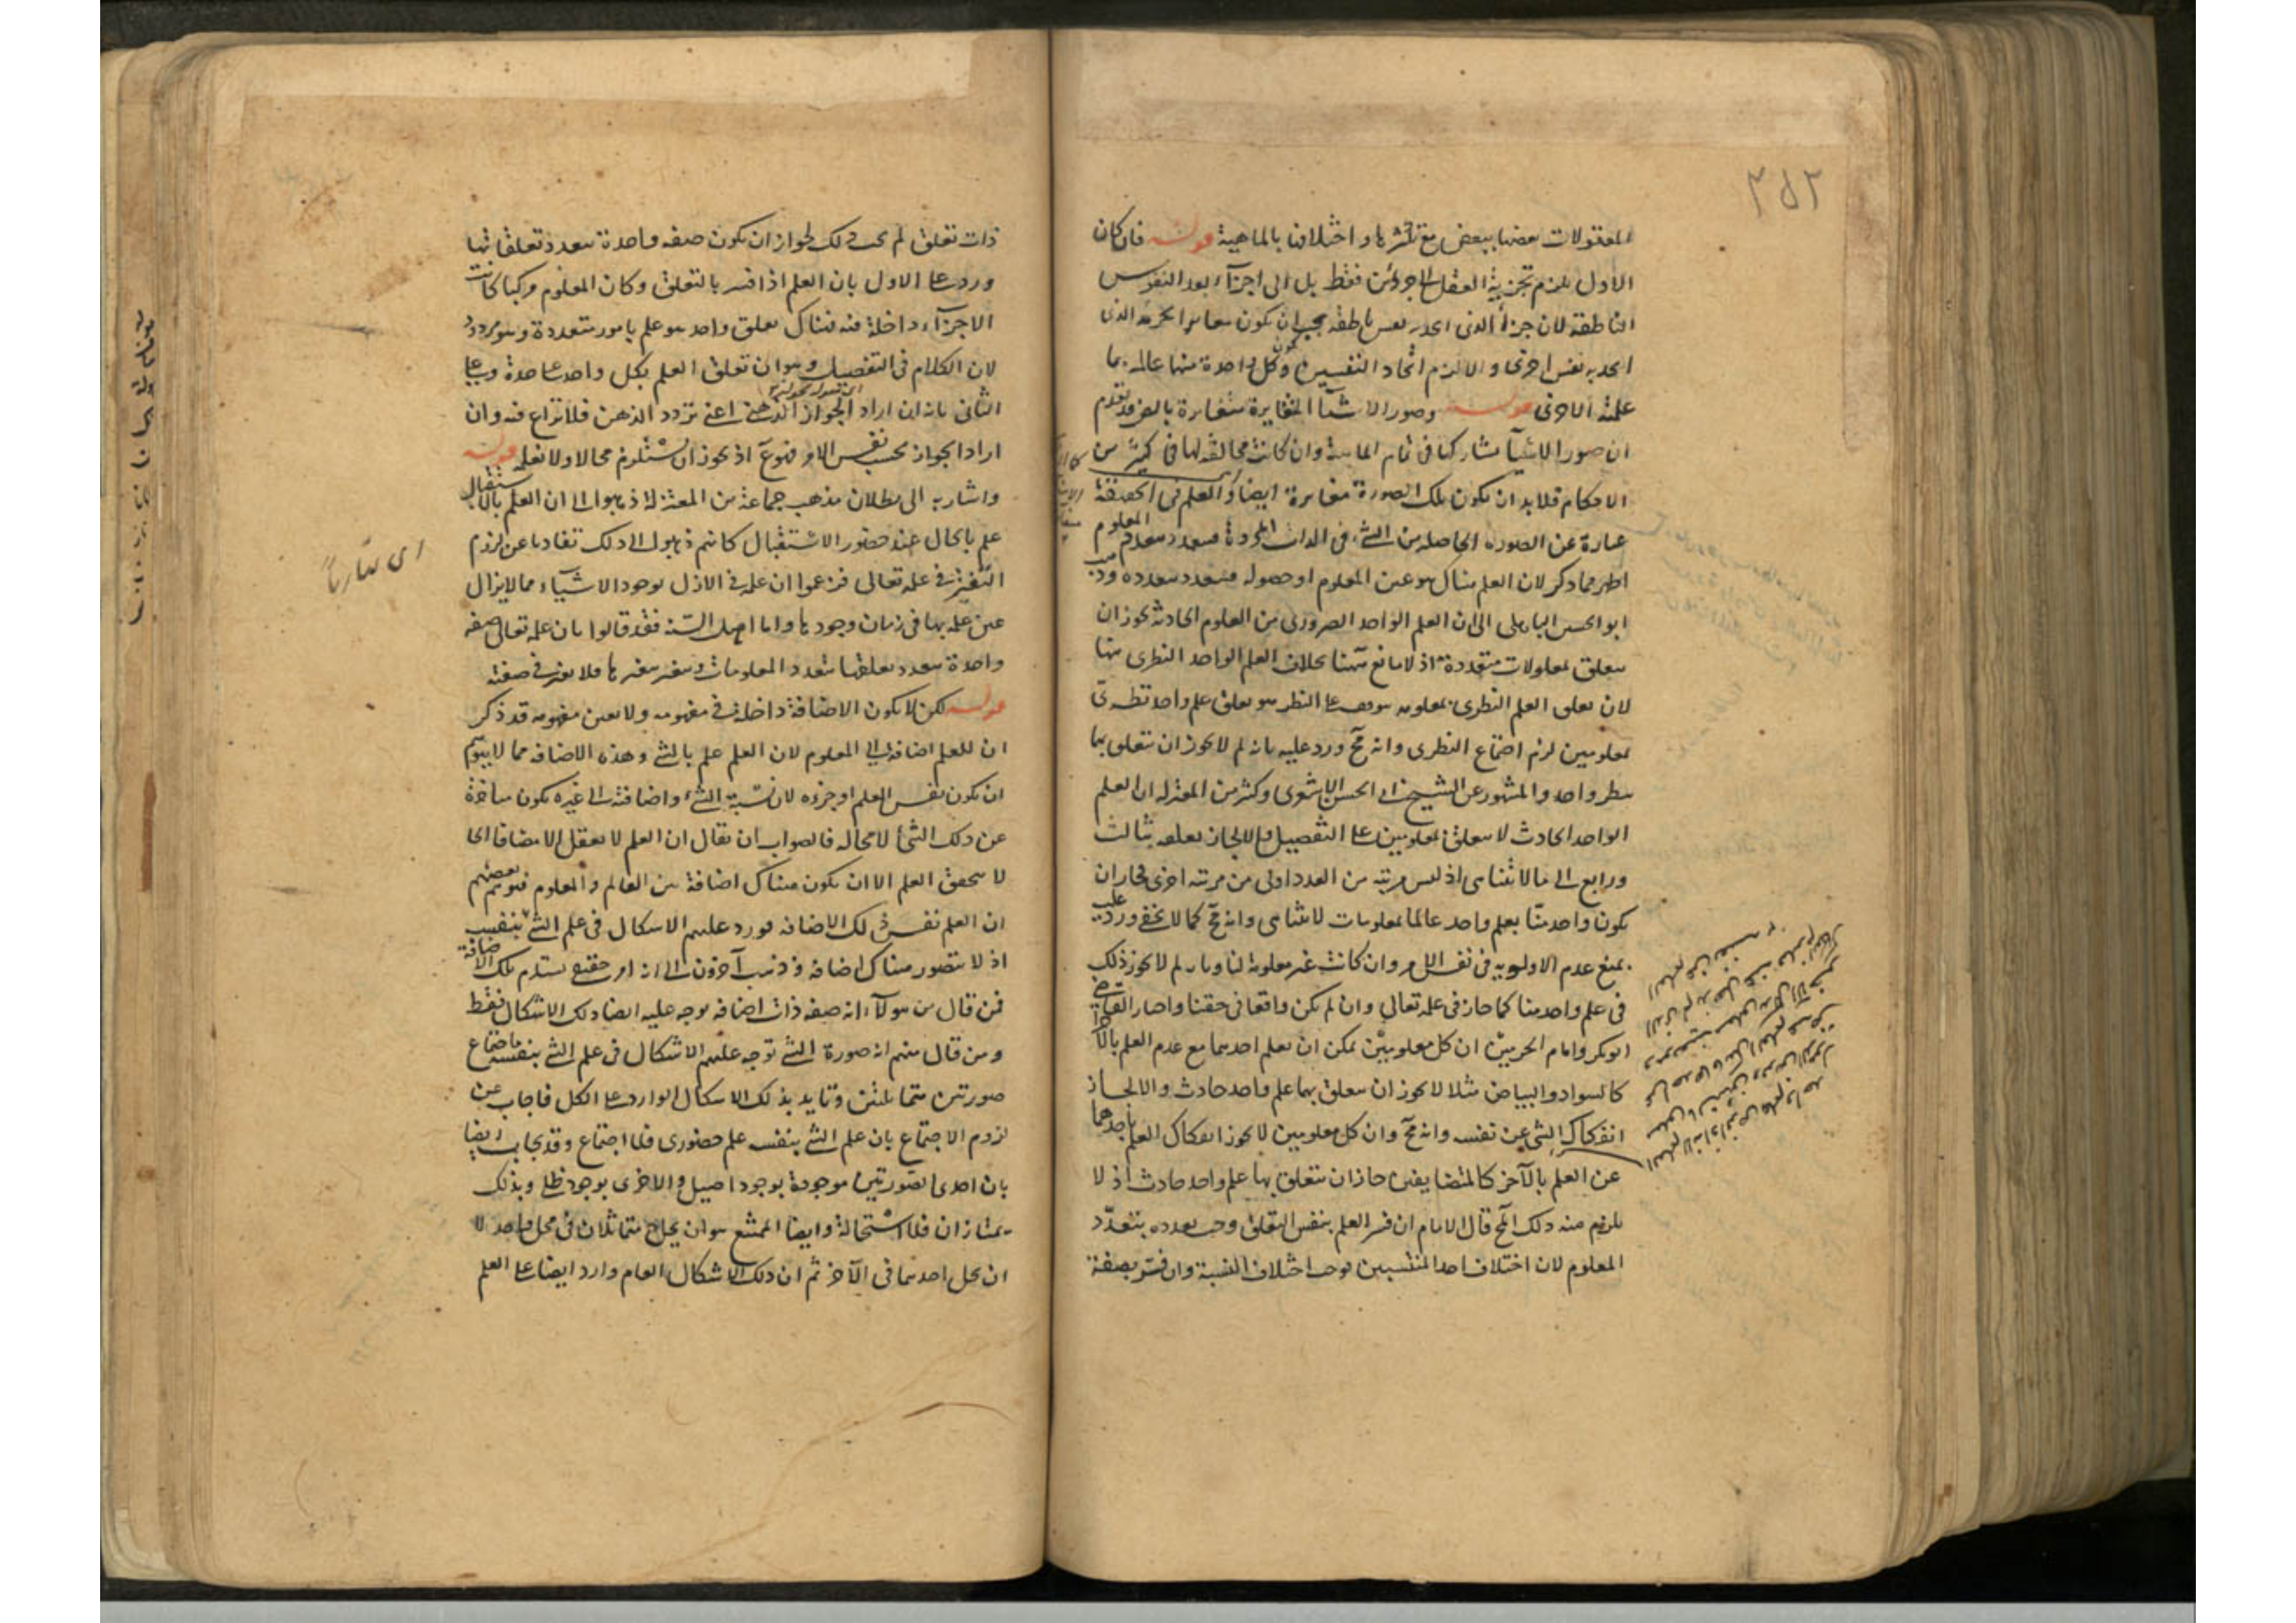 ٣٥٢
المعقولات بعضها ببعض مع تكثرها واختلافها بالماهية قوله فان كان
الاول يلزم تجزية العقل لا جزئين فقط بل الى اجزاء بعدد النفوس
الناطقة لان جزأ الذى اتحد بنفس ناطقة يجب ان يكون مغايرا لجزئه الذى
اتحد به نفس اخرى والا لزم اتحاد النفسين وكون كل واحدة منها عالمة بما
علمته الاخرى قوله وصور الاشيآ المتغايرة متغايرة بالضر قد تقدم
ان صور الاشيآ تشاركها فى تمام الماهية وان كانت مخالفة لها فى كثير من
الاحكام فلا بد ان يكون تلك الصورة متغايرة ايضا والعلم فى الحقيقة
عبارة عن الصورة الحاصلة من الشئ فى الذات المجردة فيتعدد بتعدد المعلوم
اظهر مما ذكر لان العلم هناك هو عين المعلوم او حصوله فيتعدد بتعدده وذهب
ابو الحسن الباهلى الى ان العلم الواحد الضرورى من العلوم الحادثة يجوز ان
يتعلق بمعلومات متعددة اذ لا مانع ههنا بخلاف العلم الواحد النظرى منها
لان تعلق العلم النظرى بمعلومه يتوقف على النظر فلو تعلق علم واحد نظرى
بمعلومين لزم اجتماع النظرى وانه مح ورد عليه بانه لم لا يجوز ان يتعلق بهما
بنظر واحد والمشهور عن الشيخ ابى الحسن الاشعرى وكثير من المعتزلة ان العلم
الواحد الحادث لا يتعلق بمعلومين على التفصيل والا لجاز تعلقه بثالث
ورابع الى ما لا يتناهى اذ ليس مرتبة من العدد اولى من مرتبة اخرى فجاز ان
يكون واحد منا بعلم واحد عالما بمعلومات لا تتناهى وانه مح كما لا يخفى ورد عليه
بمنع عدم الاولوية فى نفس الامر وان كانت غير معلومة لنا وبانه لم لا يجوز ذلك
فى علم واحد منا كما جاز فى علمه تعالى وان لم يكن واقعا فى حقنا واختار القاضى
ابو بكر وامام الحرمين ان كل معلومين يمكن ان يعلم احدهما مع عدم العلم بالآخر
كالسواد والبياض مثلا لا يجوز ان يتعلق بهما علم واحد حادث والا لجاز
انفكاك الشئ عن نفسه وانه مح وان كل معلومين لا يجوز انفكاك العلم باحدهما
عن العلم بالآخر كالمتضايفين جاز ان يتعلق بهما علم واحد حادث اذ لا
يلزم منه ذلك المح قال الامام ان فسر العلم بنفس التعلق وجب تعدده بتعدد
المعلوم لان اختلاف احد المنتسبين يوجب اختلاف النسبة وان فسر بصفة
ذات تعلق لم يجب ذلك لجواز ان يكون صفة واحدة يتعدد تعلقاتها
ورد على الاول بان العلم اذا فسر بالتعلق وكان المعلوم مركبا كانت
الاجزآء داخلة فيه فهناك تعلق واحد هو علم بامور متعددة وهو مردود
لان الكلام فى التفصيل وهو ان تعلق العلم بكل واحد على حدة وعلى
الثانى بانه ان اراد الجواز الذهنى اعنى تردد الذهن فلا نزاع فيه وان
اراد الجواز بحسب نفس الامر فممنوع اذ يجوز ان يستلزم محالا ولا نعلمه قوله
واشار به الى بطلان مذهب جماعة من المعتزلة ذهبوا الى ان العلم بالاستقبال
علم بالحال عند حضور الاستقبال كانهم ذهبوا الى ذلك تفاديا عن لزوم
التغير فى علمه تعالى فزعموا ان علمه فى الازل بوجود الاشياء مما لا يزال
عين علمه بها فى زمان وجودها واما اهل السنة فقد قالوا بان علمه تعالى صفة
واحدة يتعدد تعلقها بتعدد المعلومات ويتغير بتغيرها فلا تغير فى صفته
قوله لكن لا يكون الاضافة داخلة فى مفهومه ولا نفس مفهومه قد ذكر
ان للعلم اضافة الى المعلوم لان العلم علم بالشئ وهذه الاضافة مما لا يتوهم
ان يكون نفس العلم او جزءه لان نسبة الشئ واضافته الى غيره يكون متأخرة
عن ذلك الشئ لا محالة فالصواب ان يقال ان العلم لا يعقل الا مضافا اى
لا يتحقق العلم الا ان يكون هناك اضافة بين العالم والمعلوم فتوهم بعضهم
ان العلم نفس تلك الاضافة فورد عليهم الاشكال فى علم الشئ بنفسه
اذ لا يتصور هناك اضافة وذهب آخرون الى انه امر حقيقى يستلزم تلك الاضافة
فمن قال من هؤلآء انه صفة ذات اضافة توجه عليه ايضا ذلك الاشكال فقط
ومن قال منهم انه صورة الشئ توجه عليهم الاشكال فى علم الشئ بنفسه باجتماع
صورتين متماثلتين وتأيد بذلك الاشكال الوارد على الكل فاجاب عن
لزوم الاجتماع بان علم الشئ بنفسه علم حضورى فلا اجتماع وقد يجاب ايضا
بان احدى الصورتين موجودة بوجود اصيل والاخرى بوجود ظلى وبذلك
يمتازان فلا استحالة وايضا الممتنع هو ان يحل متماثلان فى محل واحد لا
ان يحل احدهما فى الآخر ثم ان ذلك الاشكال العام وارد ايضا على العلم